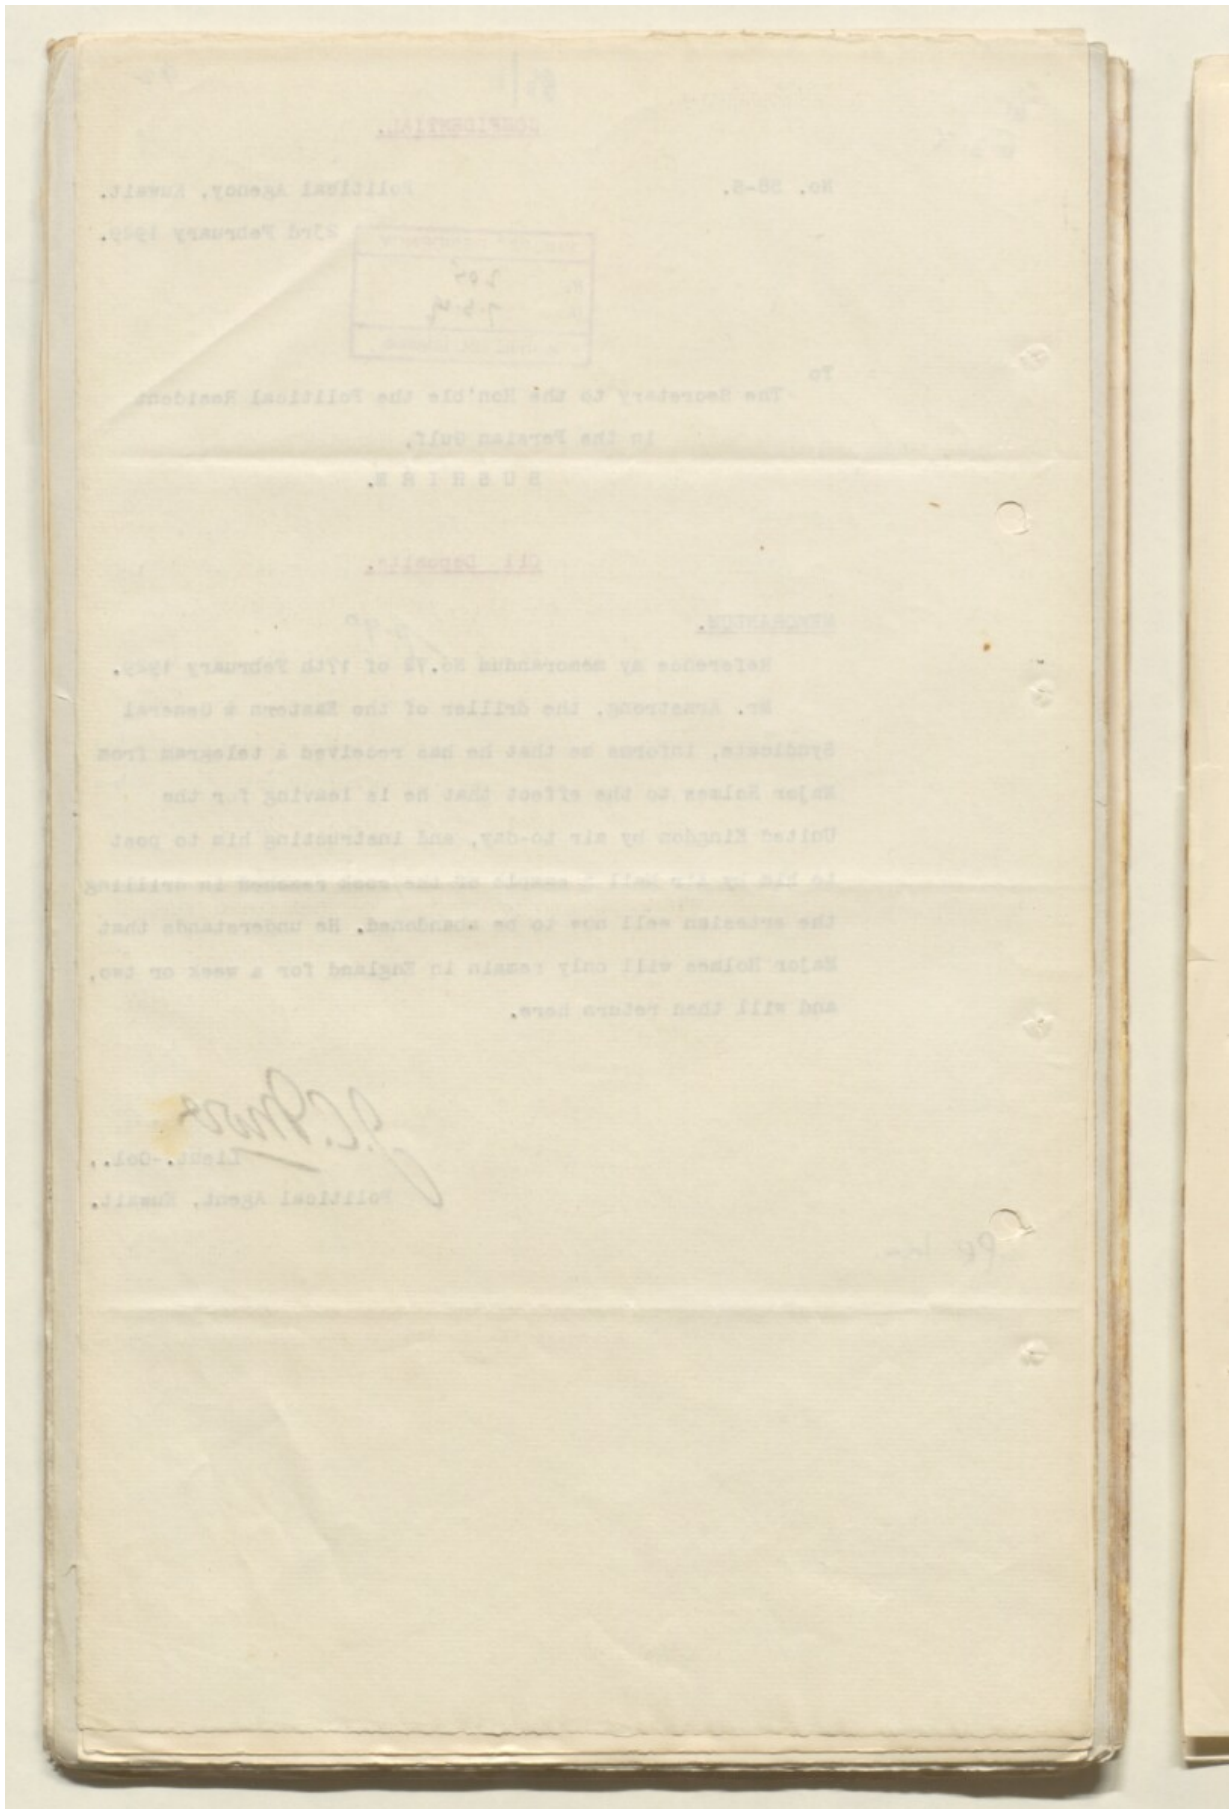 CONFIDENTIAL.
No. 88-S.
Political Agency, Kuwait.
23rd February 1929.
To
The Secretary to the Hon'ble the Political Resident
in the Persian Gulf,
BUSHIRE.
Oil Deposits.
MEMORANDUM.
Reference my memorandum No.78 of 17th February 1929.
Mr. Armstrong, the driller of the Eastern & General
Syndicate, informs me that he has received a telegram from
Major Holmes to the effect that he is leaving for the
United Kingdom by air to-day, and instructing him to post
to him by Air Mail a sample of the rock reached in drilling
the artesian well now to be abandoned. He understands that
Major Holmes will only remain in England for a week or two,
and will then return here.
J.C. More
Lieut.-Col.,
Political Agent, Kuwait.